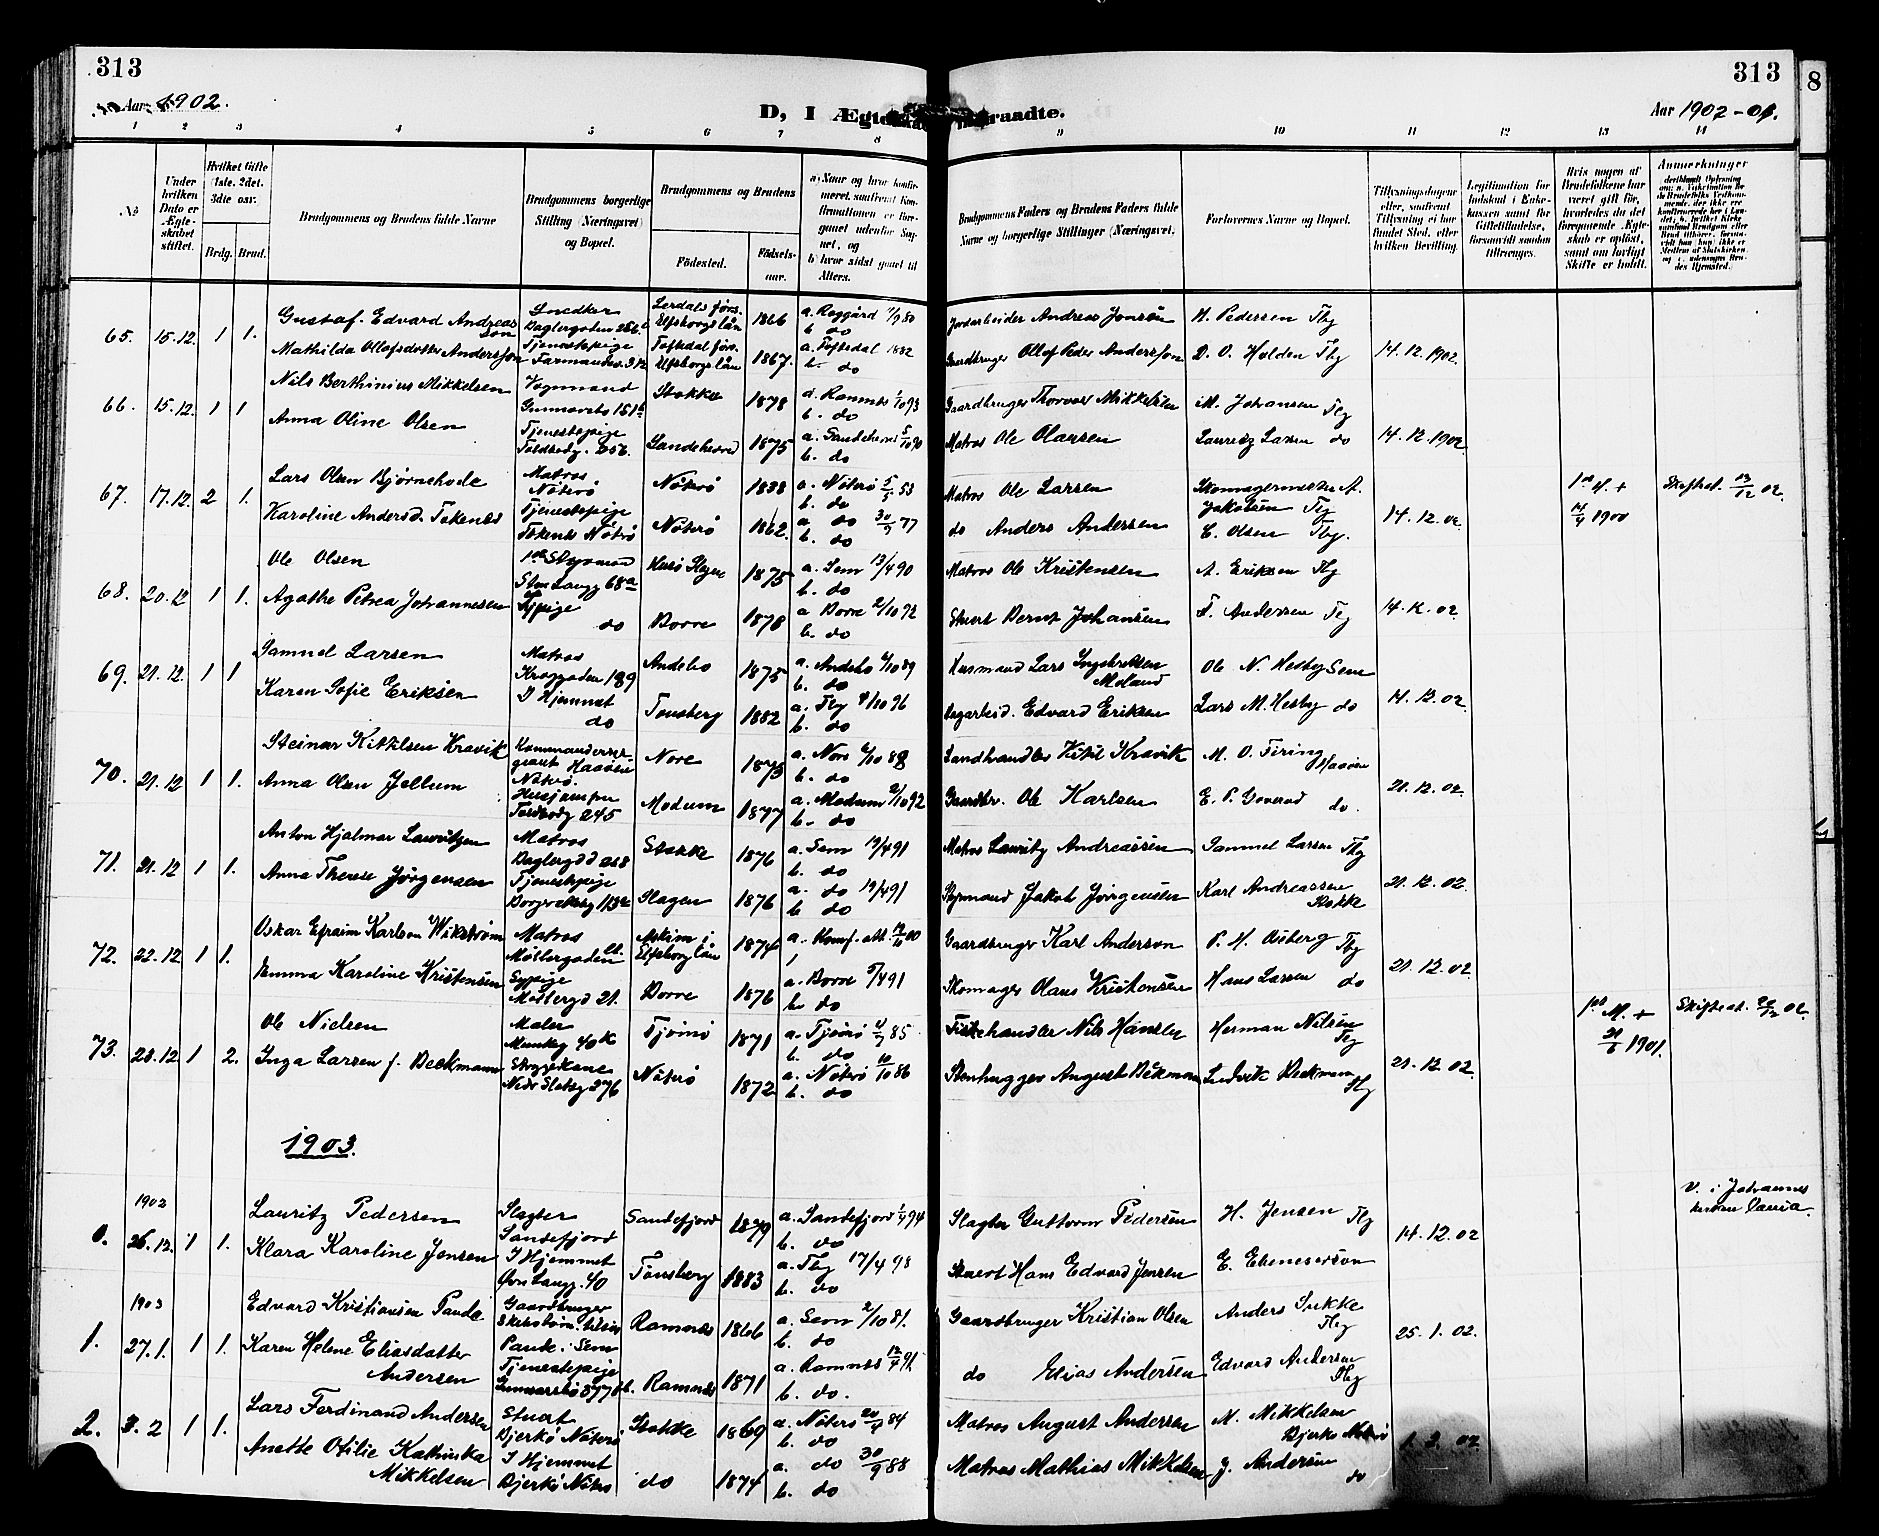 313
313
8
Aar 1902.
D, I Ægte raadte.
Aar 1902-03.
1 2 3 4 5 6 7 8 9 10 11 12 13 14
No
Under hvilken Dato er Ægteskabet stiftet.
Hvilket Gifte (1ste, 2det, 3die osv.
Brdg. Brud.
Brudgommens og Brudens fulde Navne
Brudgommens borgerlige Stilling (Næringsvei) og Bopæl.
Brudgommens og Brudens
Fødested.
Fødselsaar.
a) Naar og hvor konfirmeret, samt
b) hvor sidst gaaet til Alters.
Brudgommens Faders og Brudens Faders fulde Navne og borgerlige Stillinger (Næringsvei.
Forlovernes Navne og Bopæl.
Tillysningsdagene eller, saafremt Tillysning ei har fundet Sted, efter hvilken Bevilling.
Legitimation for Indskud i Enkekassen samt for Giftetilladelse, forsaavidt saadan tiltrænges.
Hvis nogen af Brudefolkene har været gift før, hvorledes da det foregaaende Ægteskab er opløst, samt om lovligt Skifte er holdt.
Anmerkninger
65. 15.12. 1 1. Gustaf. Edvard Andreasson Snedker Baglergaten 256 Lerdals førs. Elfsborgs län 1866 a. Roggärd b. do Jordarbeider Andreas Jonsson H. Pedersen Tbg
Mathilda Ollofsdotter Andersson Tjenestepige Farmandsv. Toftedal førs. Elfsborgs län 1867. a. Toftedal 1882 b. do Gaardbruger Ollof Peder Andersson D. O. Holden Tbg 14.12.1902.
66. 15.12. 1 1 Nils Berthinius Mikkelsen Vognmand Gunnarsbø 151 Stokke 1878 a. Ramnes 1/10 93 b. do Gaardbruger Thorvor Mikkelsen M. Johansen Tbg
Anna Oline Olsen Tjenestepige Toldbodg. 256. Sandeherred 1875 a. Sandeherred 5/10 90 b. do Matros Ole Olausen Lauritz Larsen do 14.12.1902
67. 17.12. 2 1. Lars Olsen Bjørnehode Matros Nøterø Nøterø 1838 a. Nøterø 53 b. do Matros Ole Larsen Skomagermester A. Jakobsen Tbg 1ste M. + 1900 Skifteat. 13/12 02.
Karoline Andersd. Tokenes Tjenestepige Tokenes Nøterø Nøterø 1862. a. do 77 b. do do Anders Andersen C. Olsen Tbg. 14.12.02
68. 20.12 1 1. Ole Olsen 1ste Styrmand Stor Langg 68a Husø Slagen 1875 a. Sem 13/4 90 b. do Matros Ole Kristensen A. Eriksen Tbg
Agathe Petrea Johannesen Sypige do Borre 1878 a Borre 2/10 92 b. do Stuert Bernt Johansen T. Andersen Tbg 14.12.02
69. 21.12. 1 1 Samuel Larsen Matros Kroggaden 189 Andebo 1875 a. Andebo 10 89 b. do Husmand Lars Ingebretsen Moland Ole N. Hesby Sem
Karen Sofie Eriksen I Hjemmet do Tønsberg 1882 a. Tbg 4/10 96 b. do Dagarbeid. Edvard Eriksen Lars M. Hesby do 14.12.02
70. 21.12 1 1. Steinar Kittilsen Kravik Kommandersergeant Haaøen Nøterø. Nore 1873 a. Nore 6/10 88 b. do Landhandler Kitil Kravik M. O. Tiring Haaøen
Anna Olsen Jellum Husjomfru Toldbodg 245 Modum 1877 a. Modum 2/10 92 b. do Gaardbr. Ole Karlsen E. P. Goverud do. 21.12.02.
71. 21.12 1 1. Anton Hjalmar Lauritzen Matros Baglergd 268 Stokke 1876 a. Sem 19/4 91 b. do Matros Lauritz Andreassen Samuel Larsen Tbg
Anna Therese Jørgensen Tjenestepige Slagen 1876 a. do 19/4 91 b do Styrmand Jakob Jørgensen Karl Andreassen Stokke 21.12.02.
72. 22.12 1 1. Oskar Efraim Karlson Wikstrøm Matros Møllergaden 21. Askim i Elfsborg län 1874 a. Konf. att. 00 Gaardbruger Karl Anderson P. H. Osberg Tbg
Emma Karoline Kristensen Sypige Møllergd 21. Borre 1876 a. Borre 5/4 91 b. do Skomager Olaus Kristensen Hans Larsen do 21.12.02
73. 23.12 1 2. Ole Nielsen Maler Munkeg 40 Tjømø 1871 a. Tjømø 85 b. do Fiskehandler Nils Hansen Herman Nilsen Tbg 1ste M. + 1901. Skifteat. 22/12 02.
Inga Larsen f. Beckmann Strygekone Nedr Sletteg 276 Nøterø 1872 a. Nøterø 10/10 86 b. do Stenhugger August Bekman Ludvik Beckman Tbg 21.12.02.
1903.
0. 1902 26.12. 1 1. Lauritz Pedersen Slagter Sandefjord Sandefjord 1879 a. Sandefjord 94 b. do Slagter Guttorm Pedersen H. Jensen Tbg V. i Johannes kirken Larvik.
Klara Karoline Jensen I Hjemmet Øvr Langg. 40 Tønsberg 1883 a. Tbg 17/4 98 b. do Stuert Hans Edvard Jensen E. Ebenesersen 14.12.02
1. 1903 27.1. 1 1. Edvard Kristiansen Pande Gaardbruger Pande. Sem Ramnes 1866 a. Sem 2/10 81. b. do Gaardbruger Kristian Olsen Anders Sukke Tbg
Karen Helene Eliasdatter Andersen Tjenestepige Gunnarsbø 277 Ramnes 1871 a. Ramnes 12/4 91 b. do. do Elias Andersen Edvard Andersen Tbg 25.1.02.
2. 3. 2 1 1. Lars Ferdinand Andersen Stuert Bjerkø Nøterø Stokke 1869 a. Nøterø 84 b. do Matros August Andersen M. Mikkelsen Bjerkø Nøterø
Anette Otilie Kathinka Mikkelsen I Hjemmet Bjerkø Nøterø do 1874 a. do 30/9 88 b. do Matros Mathias Mikkelsen J. Andersen do 1.2.02